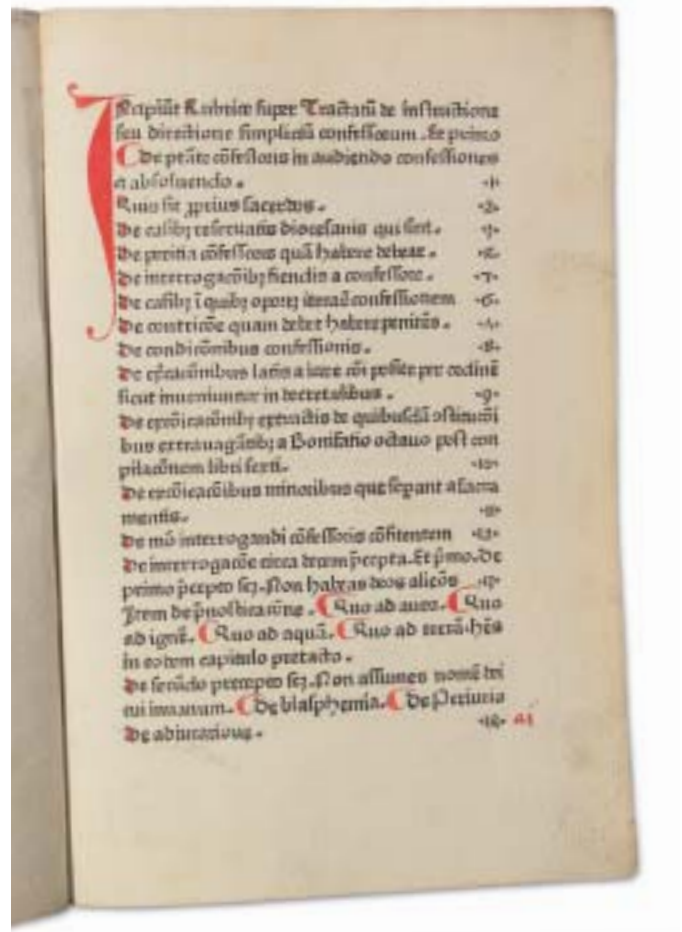 Incipiūt Rubrice super Tractatū de instructione
seu directione simpliciū confessorum. Et primo
de ptāte cōfessoris in audiendo confessiones
et absoluendo. ·1·
Quis sit ꝓprius sacerdos. ·2·
De casibꝫ reseruatis diocesanis qui sint. ·3·
De peritia cōfessoris quā habere debeat. ·4·
De interrogacōibꝫ fiendis a confessore. ·5·
De casibꝫ ī quibꝫ oportꝫ iterari confessionem ·6·
De contricōe quam debet habere penitēs. ·7·
De condicōnibus confessionis. ·8·
De exōicacōnibus latis a iure
sicut inueniuntur in decretalibus. ·9·
De exōicacōnibꝫ extractis de quibusdā
bus extrauagātibꝫ a Bonifatio octauo post con
pilacōnem libri sexti. ·10·
De exōicacōibus minoribus que sepant a sacra
mentis. ·11·
De mō interrogandi cōfessoris cōfitentem
De interrogacōe circa decem p̄cepta. Et p̄mo. De
primo p̄cepto scꝫ. Non habeas deos alienos
Item de p̄nosticacōne. Quo ad aues. Quo
ad ignē. Quo ad aquā. Quo ad terrā. hēs
in eodem capitulo pretacto.
De secūdo precepto scꝫ. Non assumes nomē dei
tui in vanum. De blasphemia. De Periurio
De adiuratione.